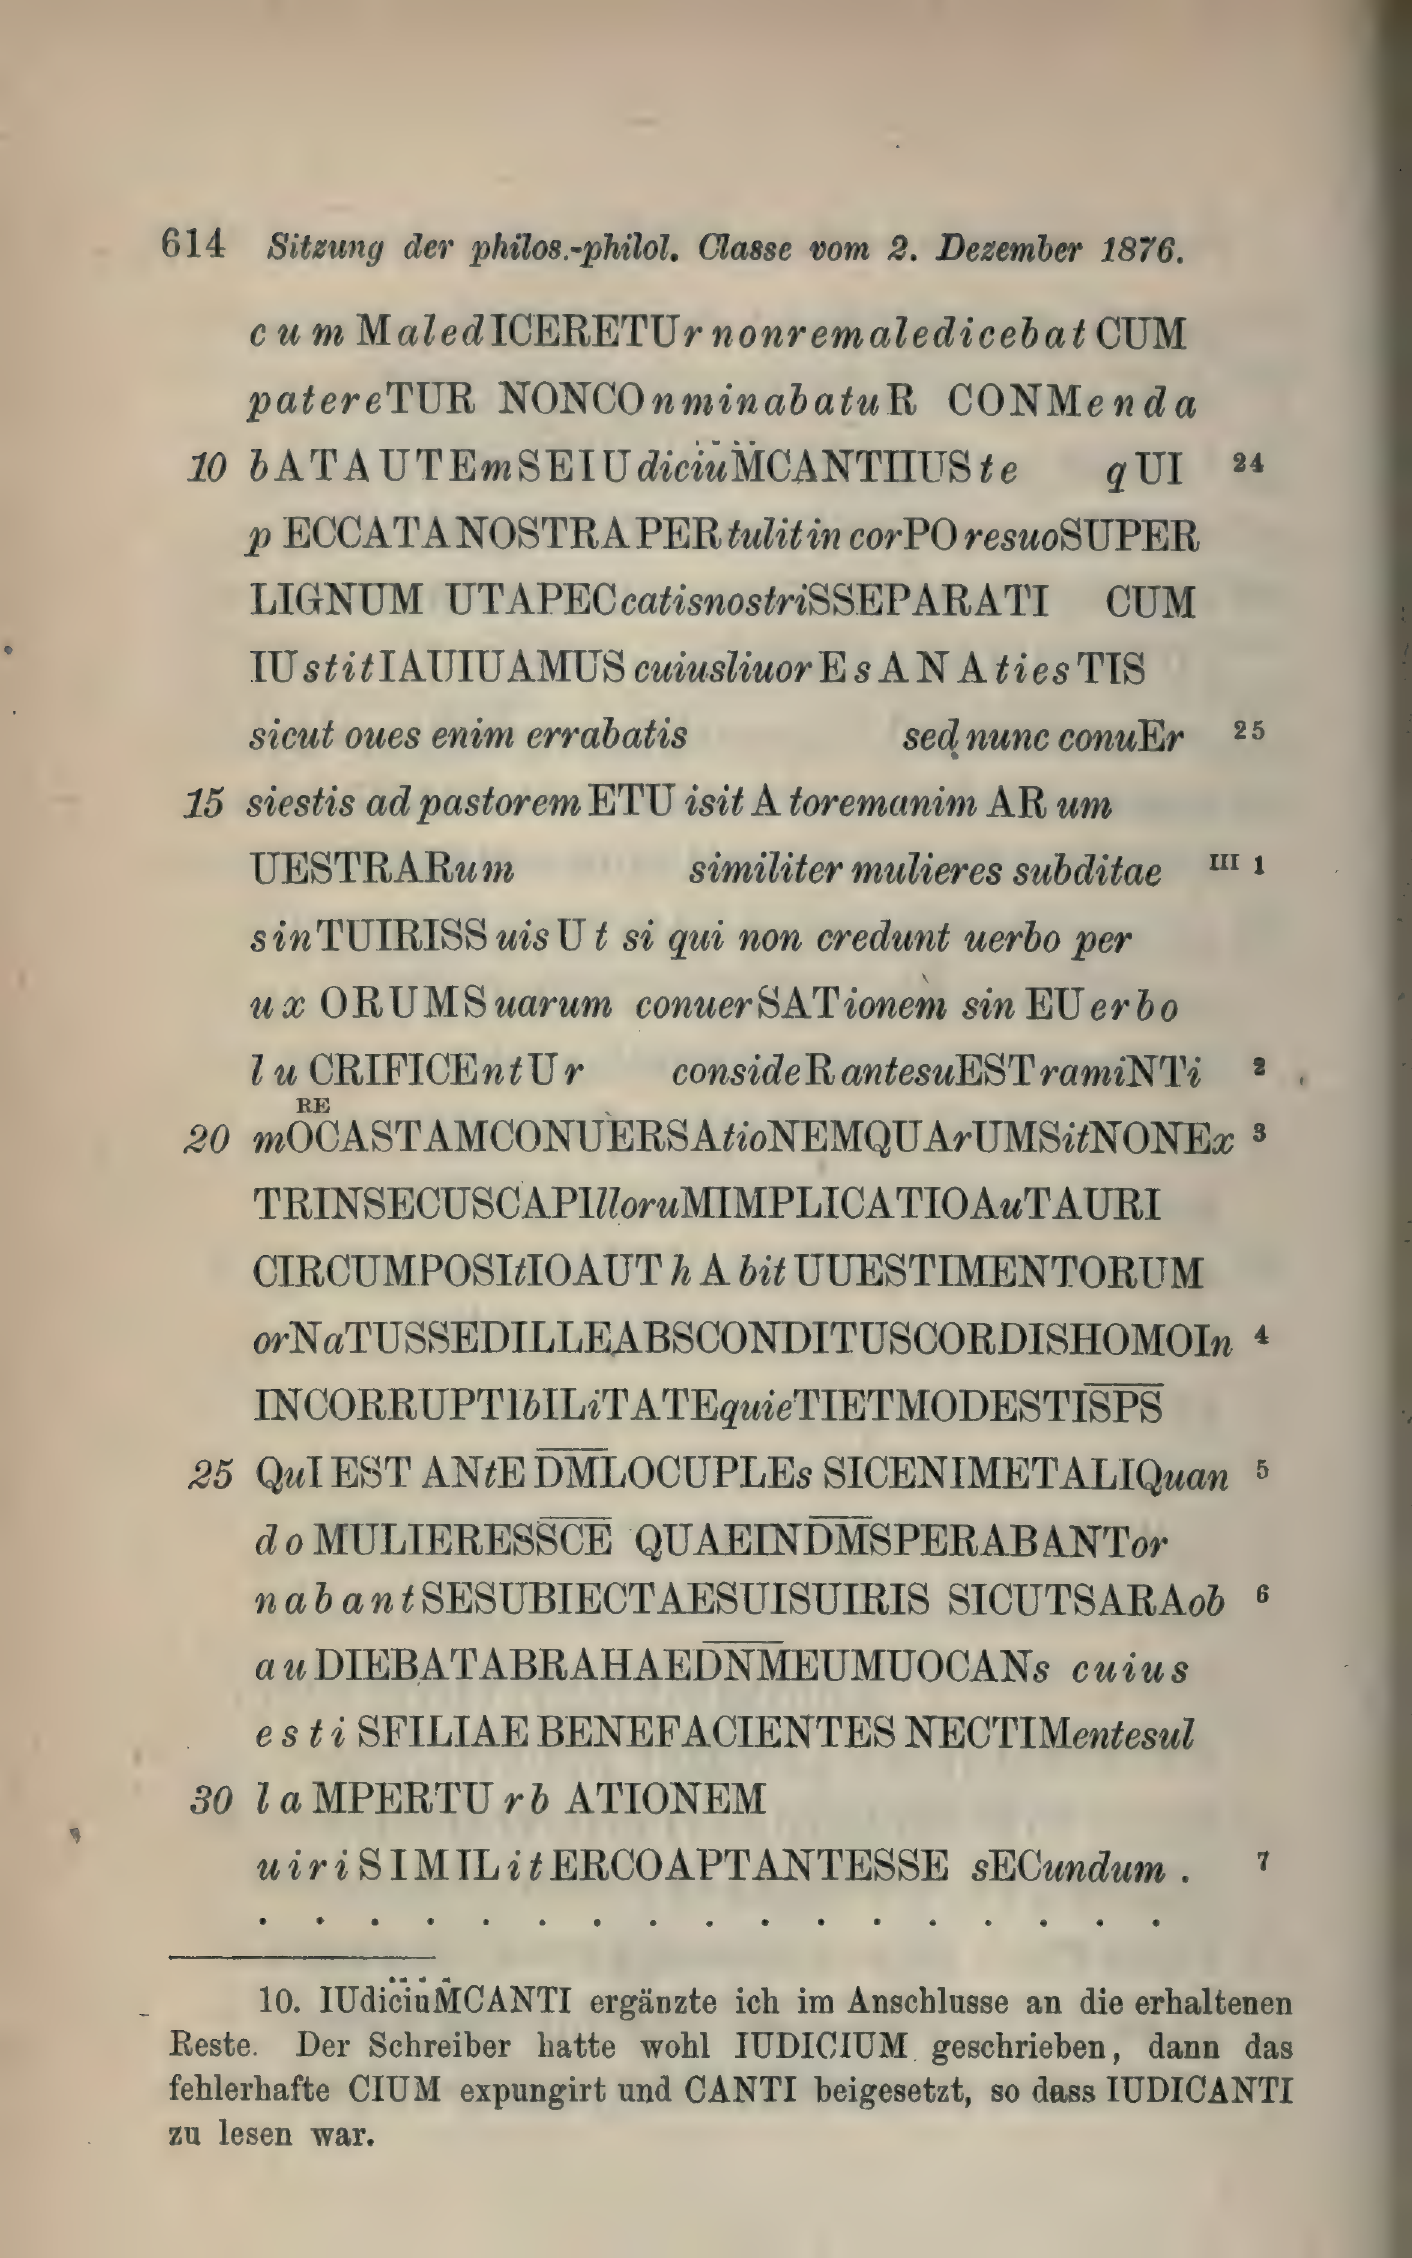 614 Sitzung der philos.-philol. Classe vom 2. Dezember 1876.
cum MaledICERETUr nonremaledicebat CUM
patereTUR NONCOnminabatuR CONMenda
10 bATAUTEmSEIUdiciu̇̈MCANTIIUSte qUI 24
pECCATANOSTRAPERtulitin corPOresuoSUPER
LIGNUM UTAPECcatisnostriSSEPARATI CUM
IUstitIAUIUAMUS cuiusliuorEsANAtiesTIS
sicut oues enim errabatis sed nunc conuEr 25
15 siestis ad pastorem ETU isit A toremanim AR um
UESTRARum similiter mulieres subditae III 1
sinTUIRISS uis U t si qui non credunt uerbo per
ux ORUMS uarum conuerSATionem sin EUerbo
lu CRIFICEntUr consideRantesuESTramiNTi 2
RE
20 mOCASTAMCONUERSAtioNEMQUArUMSitNONEx 3
TRINSECUSCAPIlloruMIMPLICATIOAuTAURI
CIRCUMPOSItIOAUT hA bit UUESTIMENTORUM
orNaTUSSEDILLEABSCONDITUSCORDISHOMOIn 4
INCORRUPTIbILiTATEquieTIETMODESTIS̅P̅S̅
25 QuI EST ANtE D̅M̅LOCUPLEs SICENIMETALIQuan 5
do MULIERESS̅C̅E̅ QUAEIND̅M̅SPERABANTor
nabantSESUBIECTAESUISUIRIS SICUTSARAob 6
auDIEBATABRAHAED̅N̅M̅EUMUOCANs cuius
estiSFILIAE BENEFACIENTES NECTIMentesul
30 la MPERTU rb ATIONEM
uiriSIMILitERCOAPTANTESSE sECundum . 7
. . . . . . . . . . . . . . . . .
10. IUdi̇̈ciu̇̈MCANTI ergänzte ich im Anschlusse an die erhaltenen
Reste. Der Schreiber hatte wohl IUDICIUM geschrieben, dann das
fehlerhafte CIUM expungirt und CANTI beigesetzt, so dass IUDICANTI
zu lesen war.